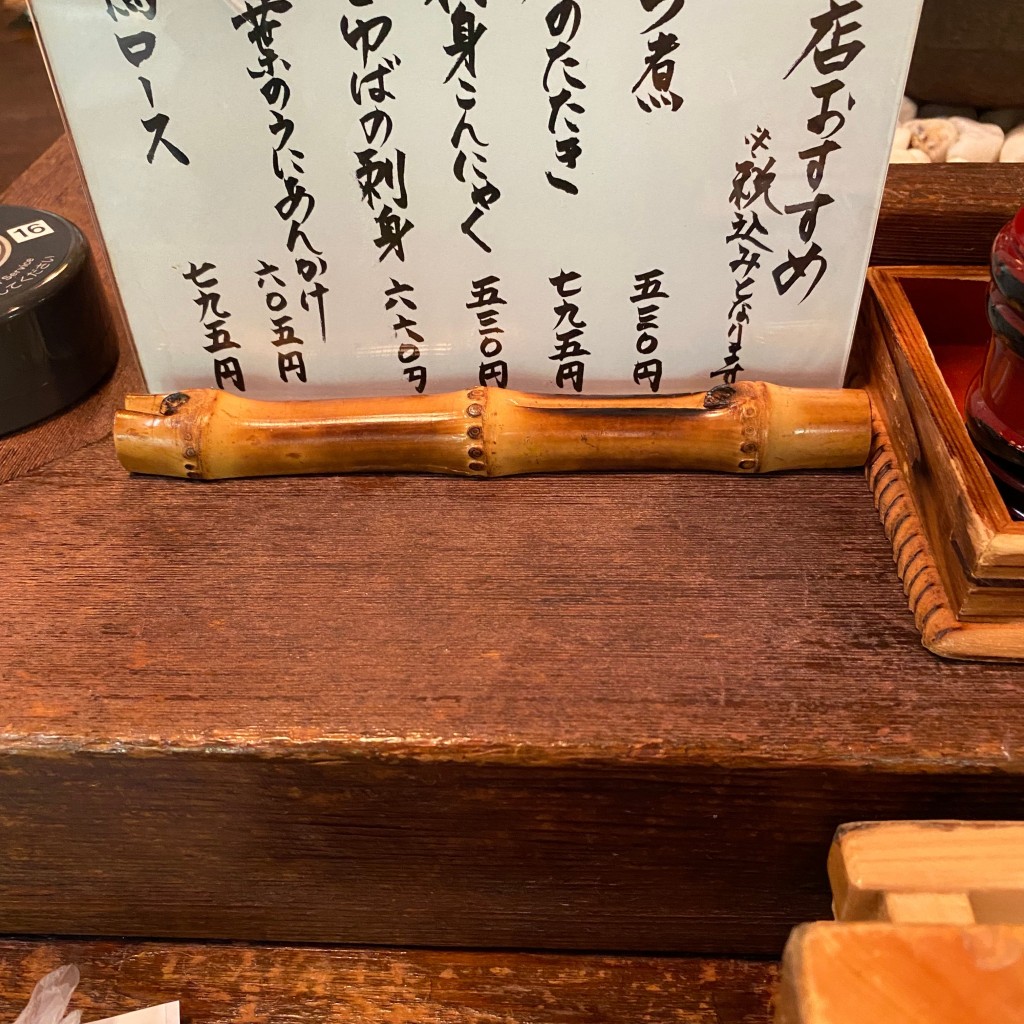 店おすすめ
※税込みとなります
煮
五三〇円
のたたき
七九五円
身こんにゃく
五三〇円
ゆばの刺身
六六〇円
葉のうにあんかけ
六〇五円
ロース
七九五円
16
Service